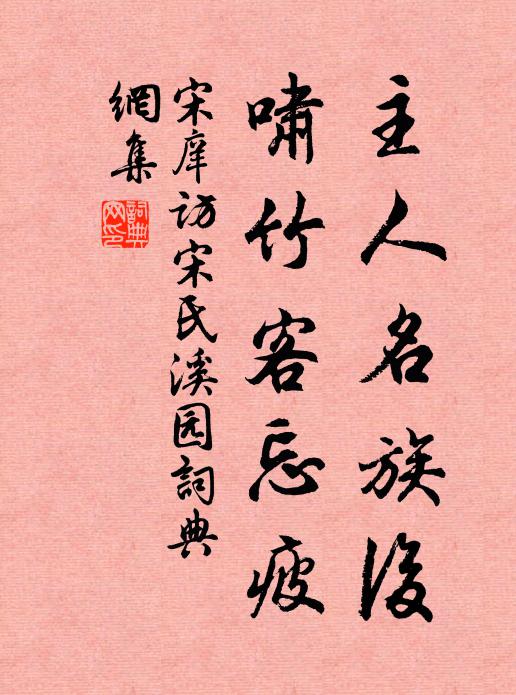 主人名族後
嘯竹客忘疲
宋庠访宋氏溪园詞典
網集
詞典
网印